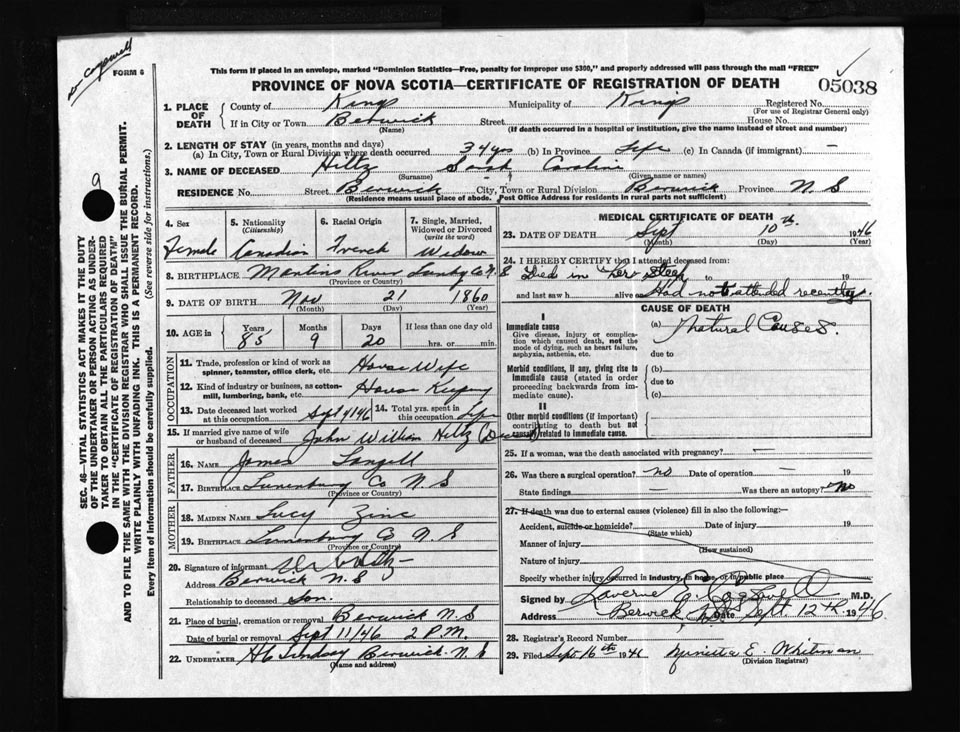 Dr Cogswell
FORM 6
This form if placed in an envelope, marked "Dominion Statistics—Free, penalty for improper use $300," and properly addressed will pass through the mail "FREE"
PROVINCE OF NOVA SCOTIA—CERTIFICATE OF REGISTRATION OF DEATH
05038
1. PLACE OF DEATH County of Kings Municipality of Kings Registered No.
(For use of Registrar General only)
If in City or Town Berwick Street House No.
(Name) (If death occurred in a hospital or institution, give the name instead of street and number)
2. LENGTH OF STAY (in years, months and days)
(a) In City, Town or Rural Division where death occurred 34 yrs (b) In Province Life (c) In Canada (if immigrant) —
3. NAME OF DECEASED Hiltz Sarah
(Surname) (Given name or names)
RESIDENCE No. Street Berwick City, Town or Rural Division Berwick Province N S
(Residence means usual place of abode. Post Office Address for residents in rural parts not sufficient)
4. Sex 5. Nationality 6. Racial Origin 7. Single, Married,
(Citizenship) Widowed or Divorced
(write the word)
Female Canadian French Widow
8. BIRTHPLACE Martins River Lunbg Co N S
(Province or Country)
9. DATE OF BIRTH Nov 21 1860
(Month) (Day) (Year)
10. AGE in Years Months Days If less than one day old
85 9 20 hrs. or min.
OCCUPATION
11. Trade, profession or kind of work as House Wife
spinner, teamster, office clerk, etc.
12. Kind of industry or business, as cotton- House Keeping
mill, lumbering, bank, etc.
13. Date deceased last worked at this occupation Sept 9/46 14. Total yrs. spent in this occupation Life
15. If married give name of wife or husband of deceased John William Hiltz
FATHER
16. NAME James Langell
17. BIRTHPLACE Lunenburg Co N S
(Province or Country)
MOTHER
18. MAIDEN NAME Lucy Zinc
19. BIRTHPLACE Lunenburg Co N S
(Province or Country)
20. Signature of informant Hiltz
Address Berwick N S
Relationship to deceased Son.
21. Place of burial, cremation or removal Berwick N S
Date of burial or removal Sept 11/46 2 P.M.
22. UNDERTAKER Lindsay Berwick N S
(Name and address)
MEDICAL CERTIFICATE OF DEATH
23. DATE OF DEATH Sept 10th 1946
(Month) (Day) (Year)
24. I HEREBY CERTIFY that I attended deceased from:
Died in her sleep to 19
and last saw h alive on Had not attended recently
CAUSE OF DEATH
I
Immediate cause (a) Natural Causes.
Give disease, injury or complication which caused death, not the mode of dying, such as heart failure, asphyxia, asthenia, etc.
due to
Morbid conditions, if any, giving rise to immediate cause (stated in order proceeding backwards from immediate cause).
(b)
due to
(c)
II
Other morbid conditions (if important) contributing to death but not causally related to immediate cause.
25. If a woman, was the death associated with pregnancy? —
26. Was there a surgical operation? no Date of operation — 19
State findings — Was there an autopsy? No
27. If death was due to external causes (violence) fill in also the following:—
Accident, suicide or homicide? Date of injury 19
(State which)
Manner of injury
(How sustained)
Nature of injury
Specify whether injury occurred in industry, in home, or in public place
Signed by Laverne E. Cogswell M.D.
Berwick N.S. Date Sept 12th 1946.
28. Registrar's Record Number
29. Filed Sept 16th 1946 E. Whitman
(Division Registrar)
SEC. 46—VITAL STATISTICS ACT MAKES IT THE DUTY
OF THE UNDERTAKER OR PERSON ACTING AS UNDER-
TAKER TO OBTAIN ALL THE PARTICULARS REQUIRED
IN THE "CERTIFICATE OF REGISTRATION OF DEATH"
AND TO FILE THE SAME WITH THE DIVISION REGISTRAR WHO SHALL ISSUE THE BURIAL PERMIT.
WRITE PLAINLY WITH UNFADING INK. THIS IS A PERMANENT RECORD.
Every item of information should be carefully supplied. (See reverse side for instructions.)
9